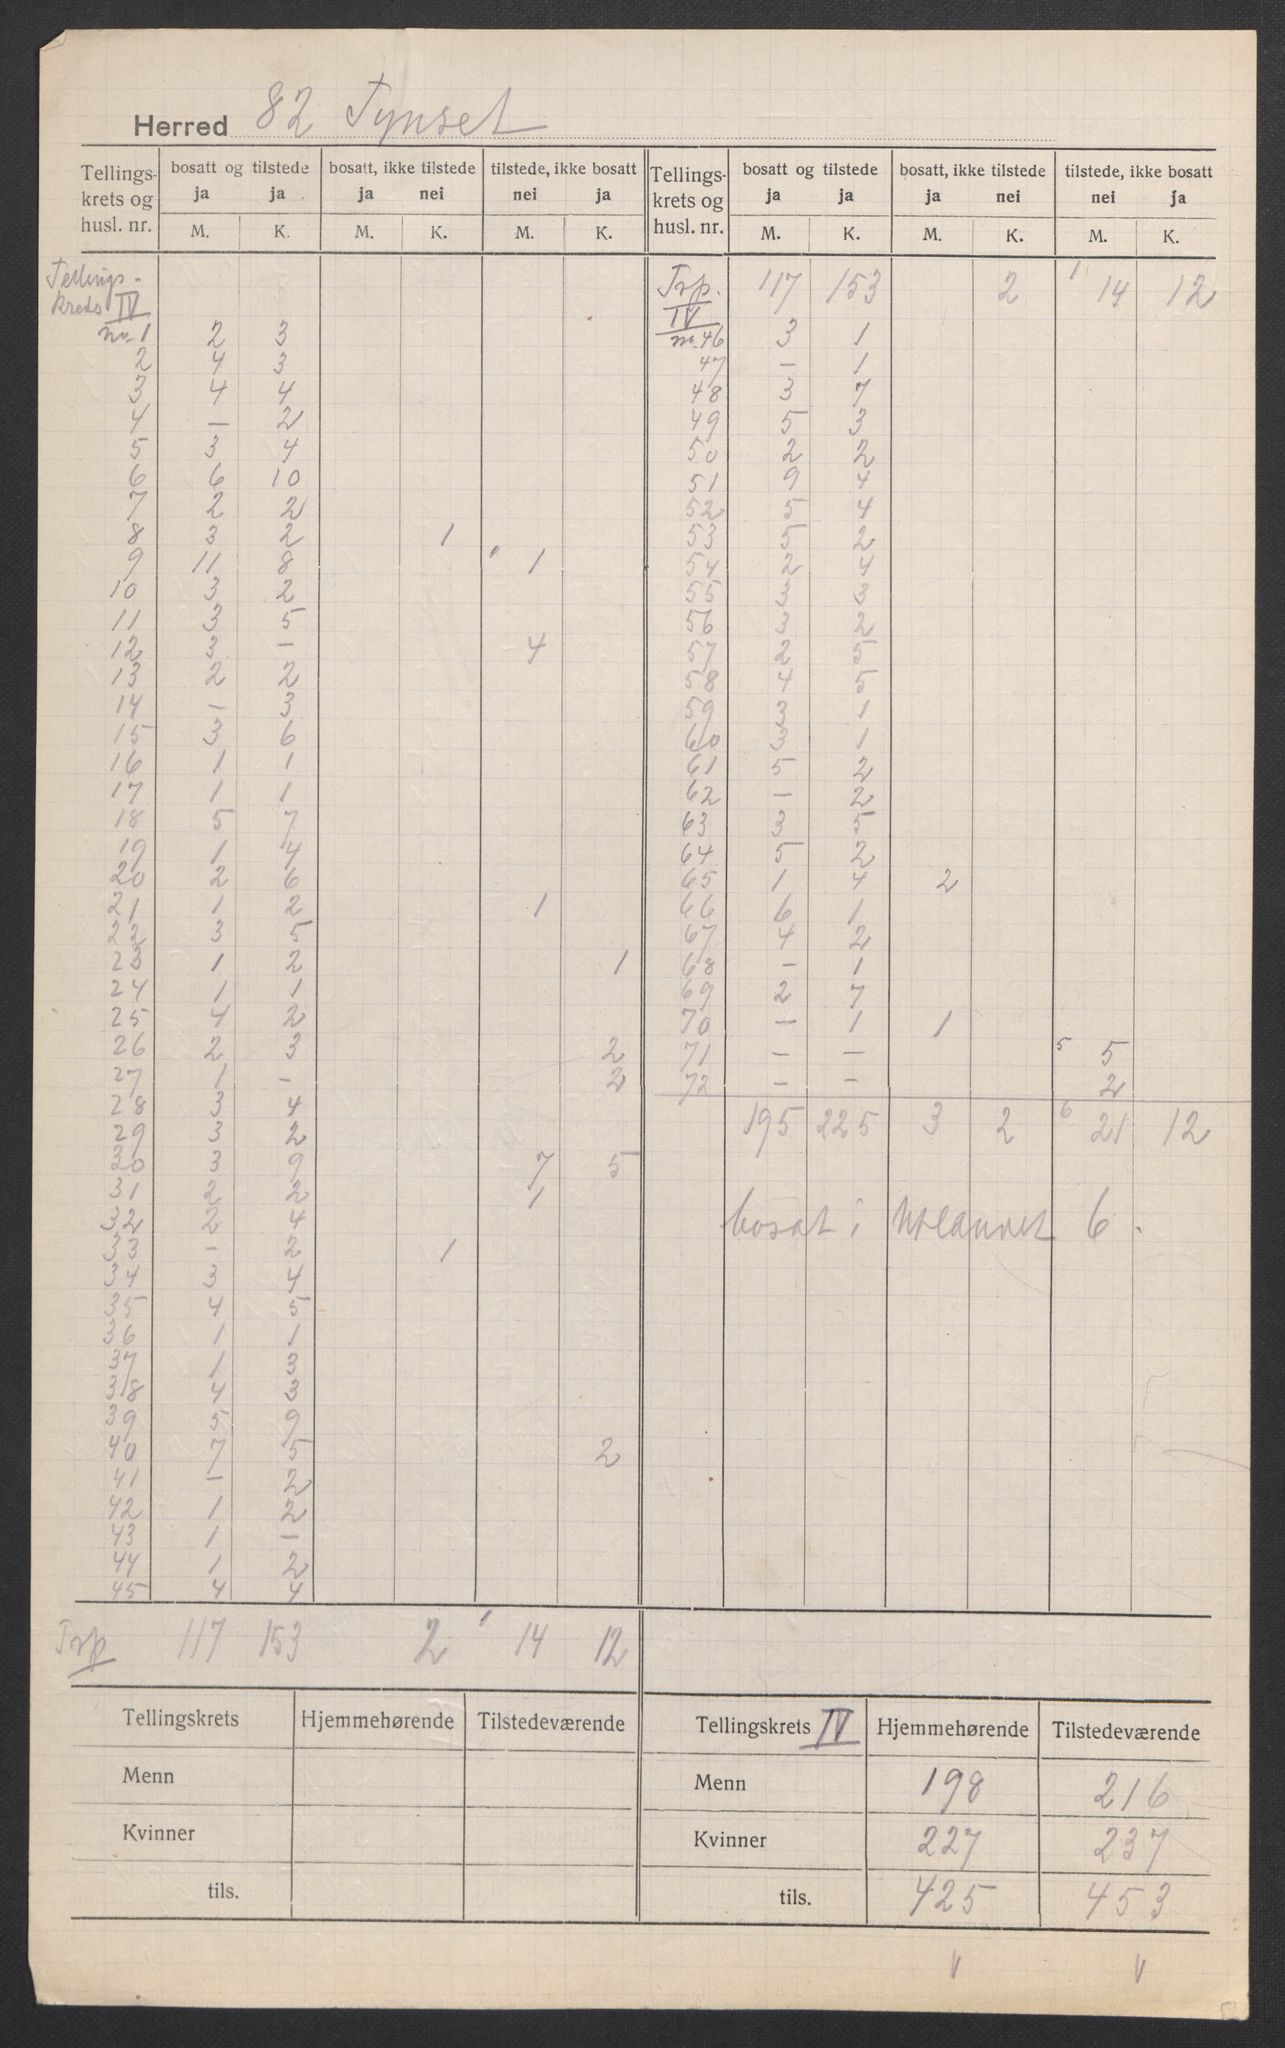 Herred 82 Tynset
Tellings-krets og husl. nr. | bosatt og tilstede ja ja M. K. | bosatt, ikke tilstede ja nei M. K. | tilstede, ikke bosatt nei ja M. K.
Tellings-
kreds IV
no. 1 2 3
2 4 3
3 4 4
4 – 2
5 3 4
6 6 10
7 2 2
8 3 2 1
9 11 8 1 1
10 3 2
11 3 5
12 3 – 4
13 2 2
14 – 3
15 3 6
16 1 1
17 1 1
18 5 7
19 1 4
20 2 6
21 1 2 1
22 3 5
23 1 2 1
24 1 1
25 4 2
26 2 3 2
27 1 – 2
28 3 4
29 3 2
30 3 9 7 5
31 2 2 1
32 2 4
33 – 2 1
34 3 4
35 4 5
36 1 1
37 1 3
38 4 3
39 5 9
40 7 5 2
41 – 2
42 1 2
43 1 –
44 1 2
45 4 4
Trp 117 153 2 1 14 12
Tellingskrets Hjemmehørende Tilstedeværende
Menn
Kvinner
tils.
Tellings-krets og husl. nr. | bosatt og tilstede ja ja M. K. | bosatt, ikke tilstede ja nei M. K. | tilstede, ikke bosatt nei ja M. K.
Trp. 117 153 2 1 14 12
IV
no. 46 3 1
47 – 1
48 3 7
49 5 3
50 2 2
51 9 4
52 5 4
53 5 2
54 2 4
55 3 3
56 3 2
57 2 5
58 4 5
59 3 1
60 3 1
61 5 2
62 – 2
63 3 5
64 5 2
65 1 4 2
66 6 1
67 4 2
68 – 1
69 2 7
70 – 1 1
71 – – 5 5
72 – – 2
195 225 3 2 6 21 12
bosat i utlandet 6.
Tellingskrets IV Hjemmehørende Tilstedeværende
Menn 198 216
Kvinner 227 237
tils. 425 453
v v